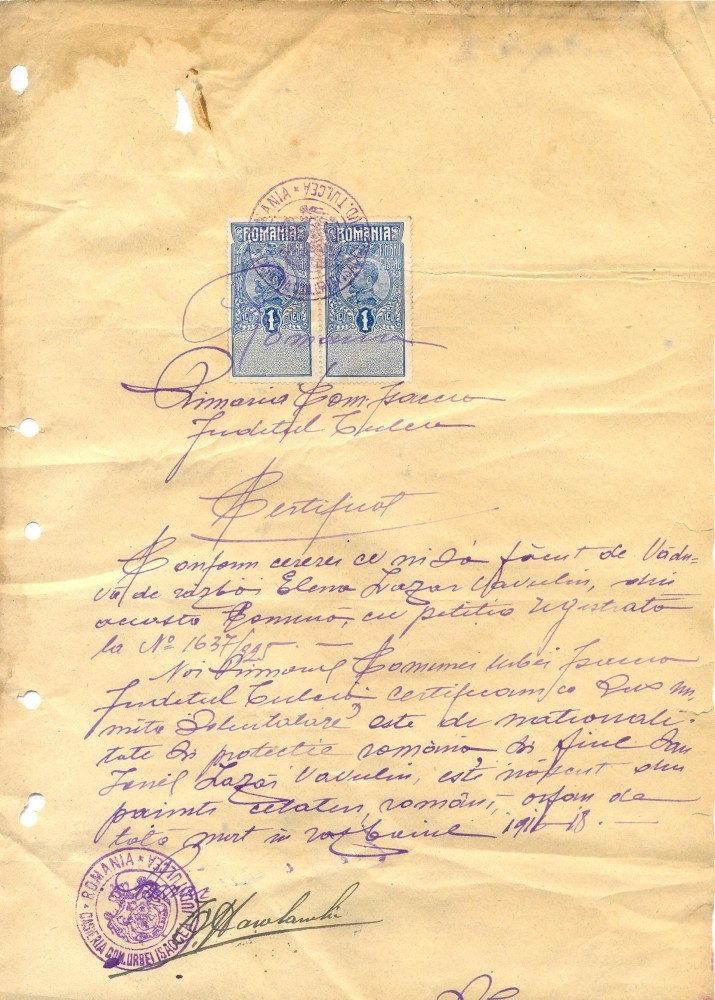 ROMANIA * JUD. TULCEA * CASIERIA COM. URBEI ISACCEA
ROMANIA ROMANIA
TIMBRU FISCAL
1 LEU 1 LEU
Romania
Primaria Com. Isaccea
Judetul Tulcea
Certificat
Conform cererei ce ni s'a făcut de Vădu-
vă de război Elena Lazar Vavulin, din
aceasta Comună, cu petitia registrată
la No 1637/925.
Noi Primarul Comunei Urbei Isaccea
Judetul Tulcea certificam ca sus nu
mita Solicitatoare este de nationali-
tate si protectie română si fiul său
Ionel Lazăr Vavulin, este născut din
parinti cetateni români, orfan de
tată mort in razboiul 1916-18. —
Primar
ROMANIA * JUD. TULCEA * CASIERIA COM. URBEI ISACCEA